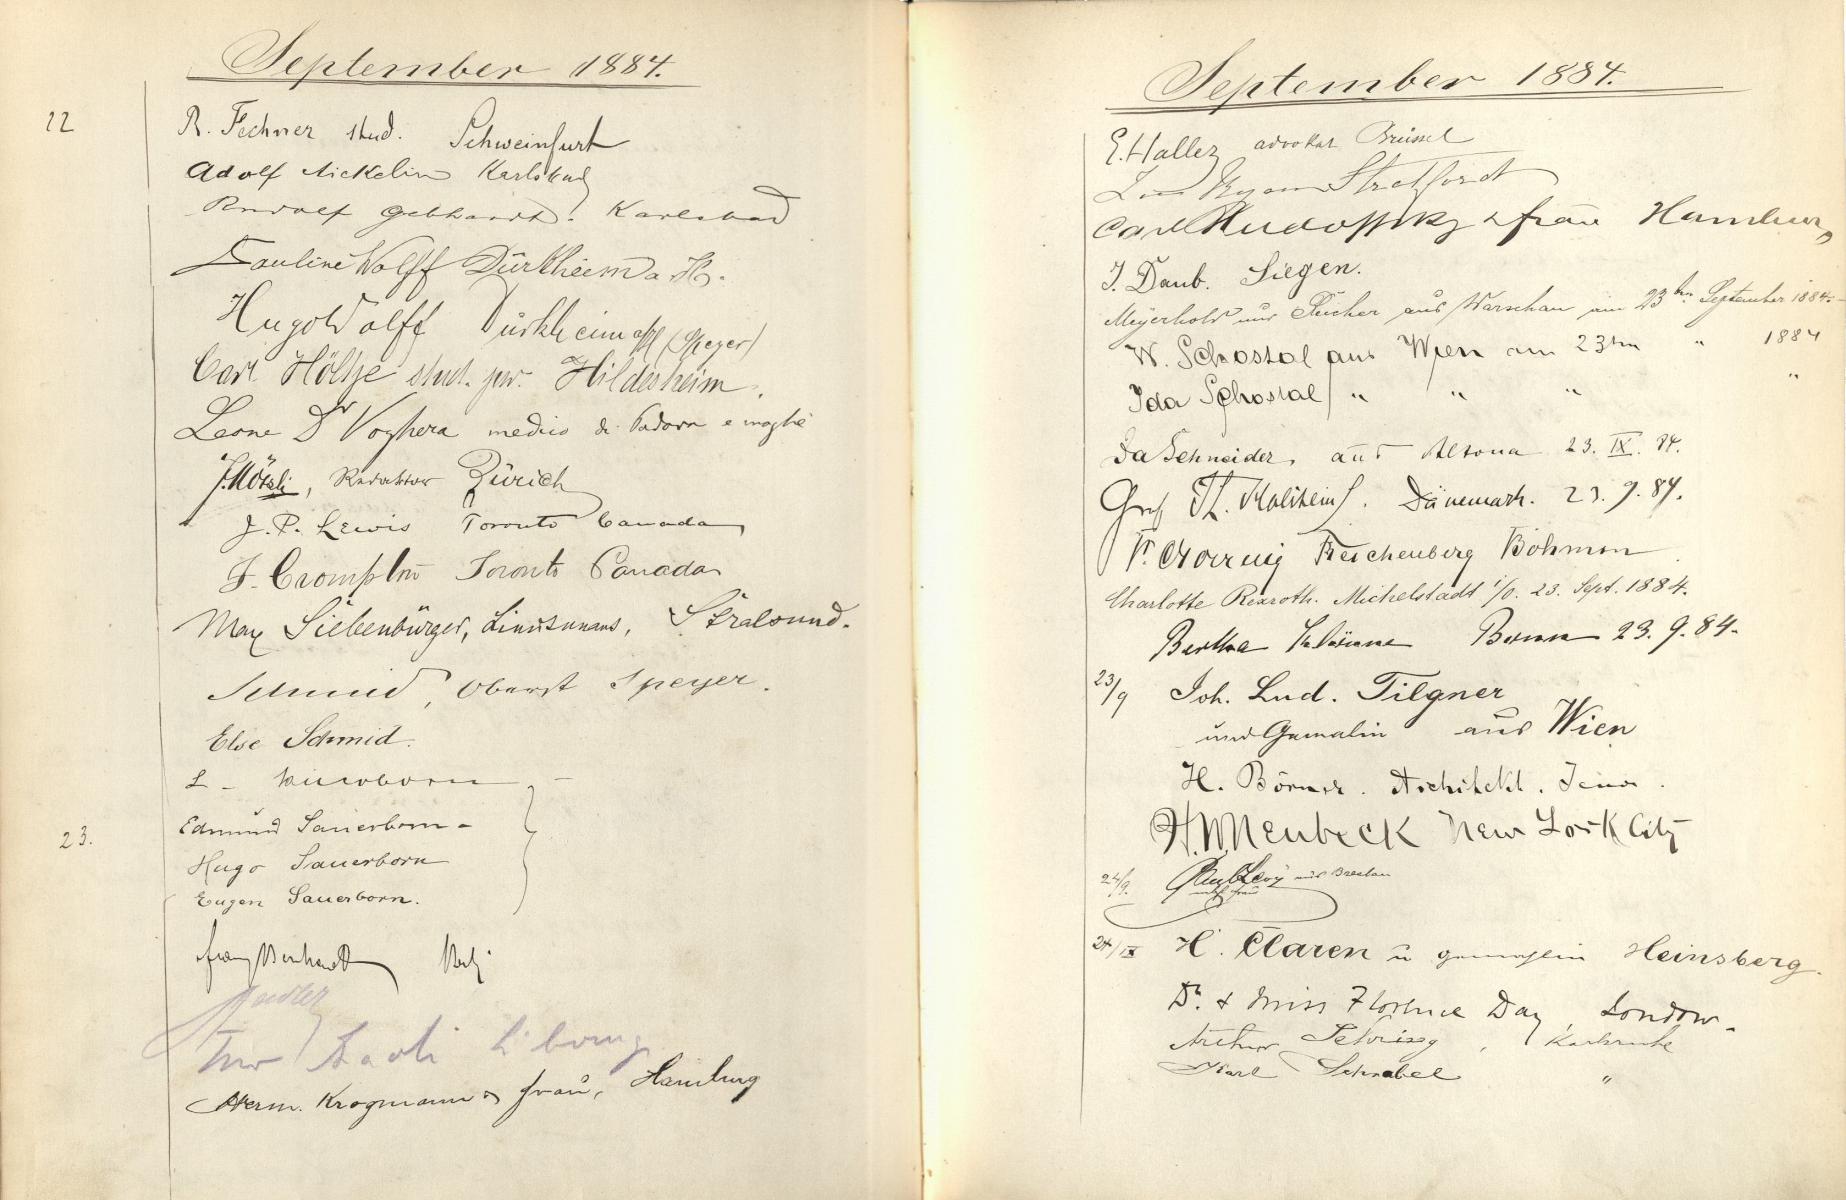 September 1884.
22
R. Fechner stud. Schweinfurt
Adolf Nickelin Karlsbad
Rudolf Gebhardt. Karlsbad
Pauline Wolff Dürkheim a. H.
Hugo Wolff Dürkheim a/H (Speyer)
Carl Höltje stud. jur. Hildesheim.
Leone Dr Voghera medico di Padova e moglie
J. , Redaktor Zürich
J. P. Lewis Toronto Canada
F. Crompton Toronto Canada
Max Siebenbürger, Stralsund.
Schmid, Oberst Speyer.
Else Schmid.
L
23.
Edmund Sauerborn
Hugo Sauerborn
Eugen Sauerborn.
Herm. Krogmann & Frau, Hamburg
September 1884.
E. Hallez advokat Brüssel
Stratford
Carl & Frau Hamburg
J. Daub. Siegen.
Meyerhold und Fischer aus Warschau am 23ten September 1884.
W. Schostal aus Wien am 23ten " 1884
Ida Schostal " " " "
Schneider aus Altona 23. IX. 84.
Graf Dänemark. 23. 9. 84.
Reichenberg Böhmen
Charlotte Rexroth. Michelstadt i/O. 23. Sept. 1884.
Bertha Bonn 23. 9. 84.
23/9 Joh. Lud. Tilgner
und Gemalin aus Wien
H. Börner. Architekt. Jena.
H. W. Meubeck New York City
24/9. Levy aus Breslau
nebst Frau
24/IX H. Claren u gemahlin Heinsberg.
Dr. & Miss Florence Day, London
Arthur , Karlsruhe
Karl Schnabel "